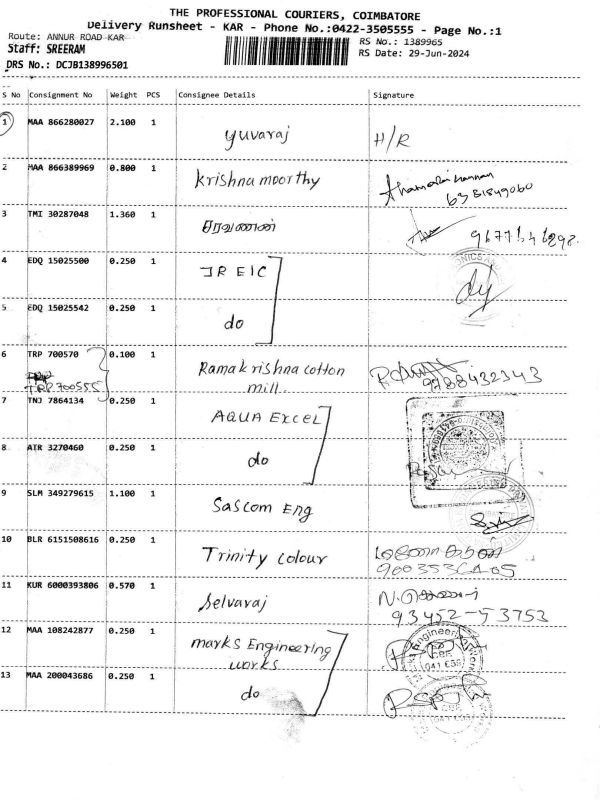 THE PROFESSIONAL COURIERS, COIMBATORE
Delivery Runsheet - KAR - Phone No.:0422-3505555 - Page No.:1
Route: ANNUR ROAD-KAR
RS No.: 1389965
Staff: SREERAM
RS Date: 29-Jun-2024
DRS No.: DCJB138996501
S No Consignment No Weight PCS Consignee Details Signature
1 MAA 866280027 2.100 1 yuvaraj H/R
2 MAA 866389969 0.800 1 Krishna moorthy
3 TMI 30287048 1.360 1 சரவணன்
4 EDQ 15025500 0.250 1 JR EIC
5 EDQ 15025542 0.250 1 do
6 TRP 700570 0.100 1 Ramakrishna cotton
mill. 9788432343
TRP 700555
7 TNJ 7864134 0.250 1 AQUA EXCEL
8 ATR 3270460 0.250 1 do
9 SLM 349279615 1.100 1 Sascom Eng
10 BLR 6151508616 0.250 1 Trinity colour
11 KUR 6000393806 0.570 1 Selvaraj
93452-53753
12 MAA 108242877 0.250 1 marks Engineering
works
13 MAA 200043686 0.250 1 do